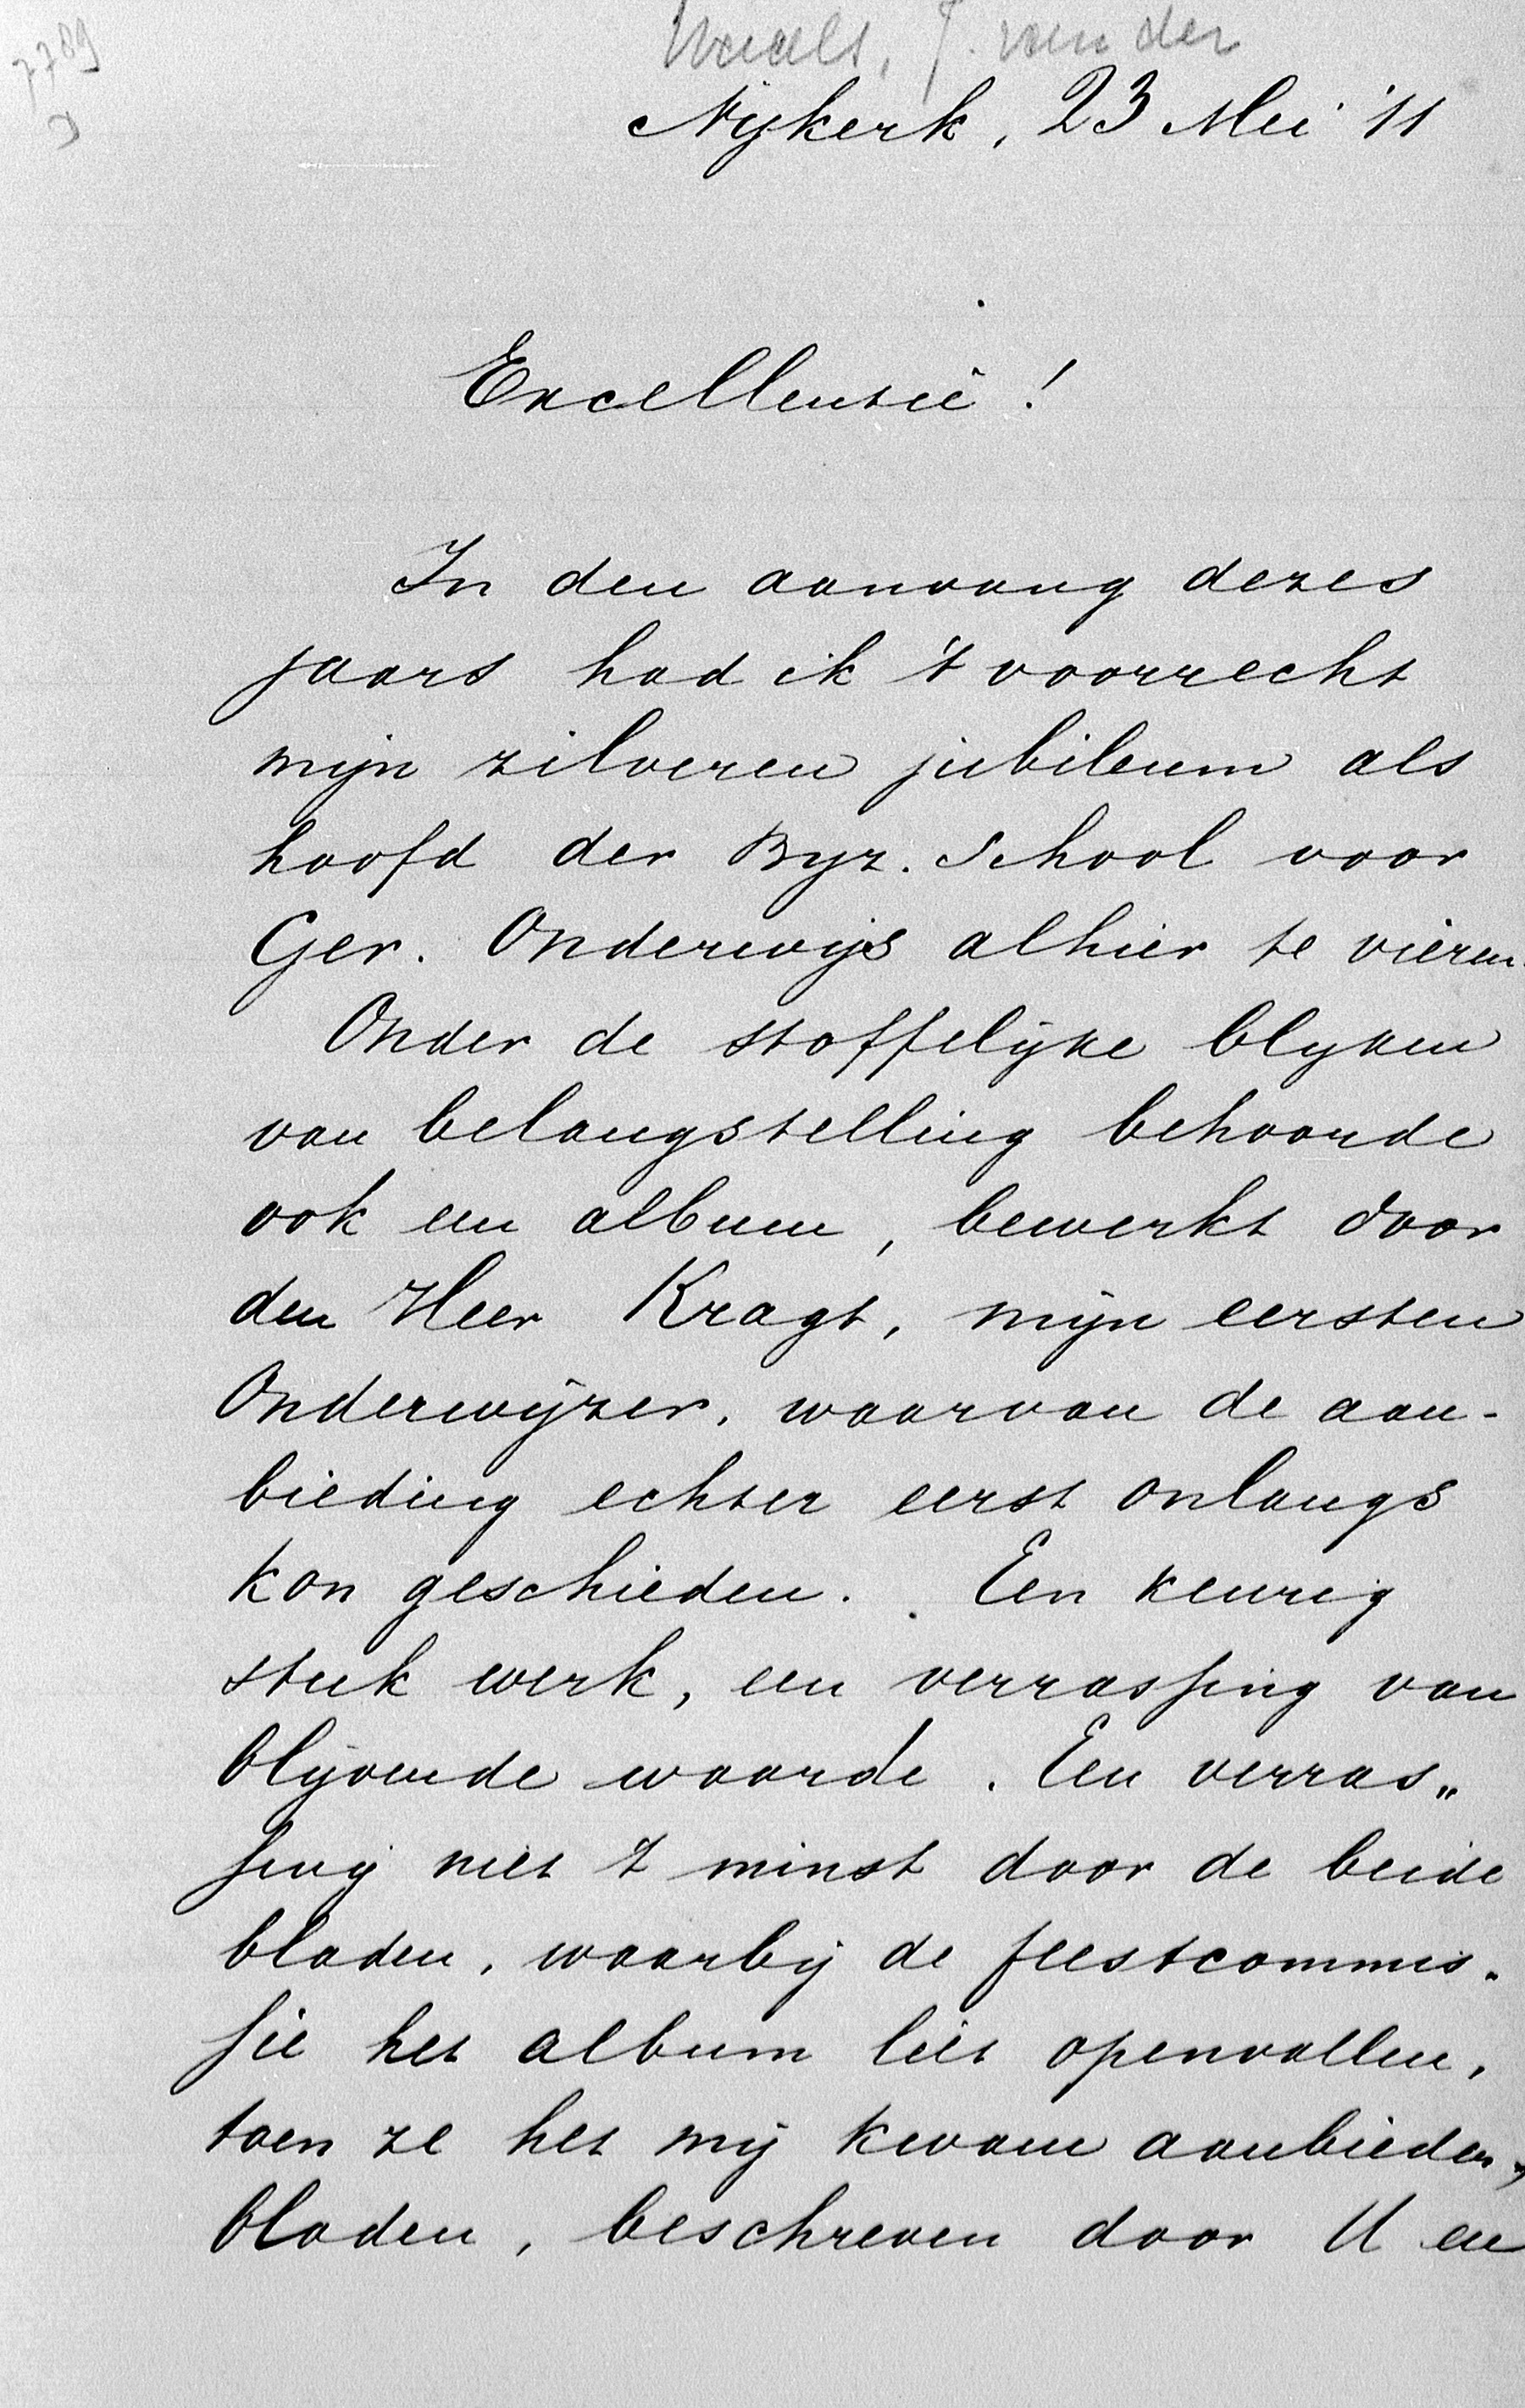 7789
Waals, J. van der
Nijkerk, 23 Mei '11
Excellentie!
In den aanvang dezes
jaars had ik 't voorrecht
mijn zilveren jubileum als
hoofd der Byz. School voor
Ger. Onderwijs alhier te vieren.
Onder de stoffelijke blyken
van belangstelling behoorde
ook een album, bewerkt door
den Heer Kragt, mijn eersten
Onderwijzer, waarvan de aan-
bieding echter eerst onlangs
kon geschieden. Een keurig
stuk werk, een verrassing van
blijvende waarde. Een verras„
sing niet 't minst door de beide
bladen, waarbij de feestcommis-
sie het album liet openvallen,
toen ze het mij kwam aanbieden,
bladen, beschreven door U en